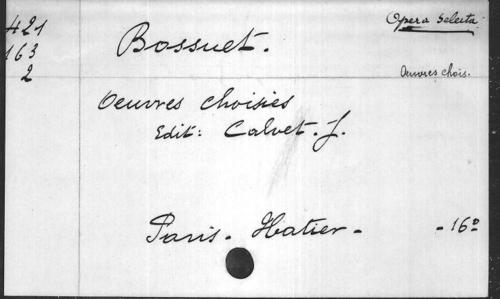 421
163
2
Bossuet.
Opera Selecta
Oeuvres chois.
Oeuvres choisies
Edit: Calvet. J.
Paris - Hatier - - 16º